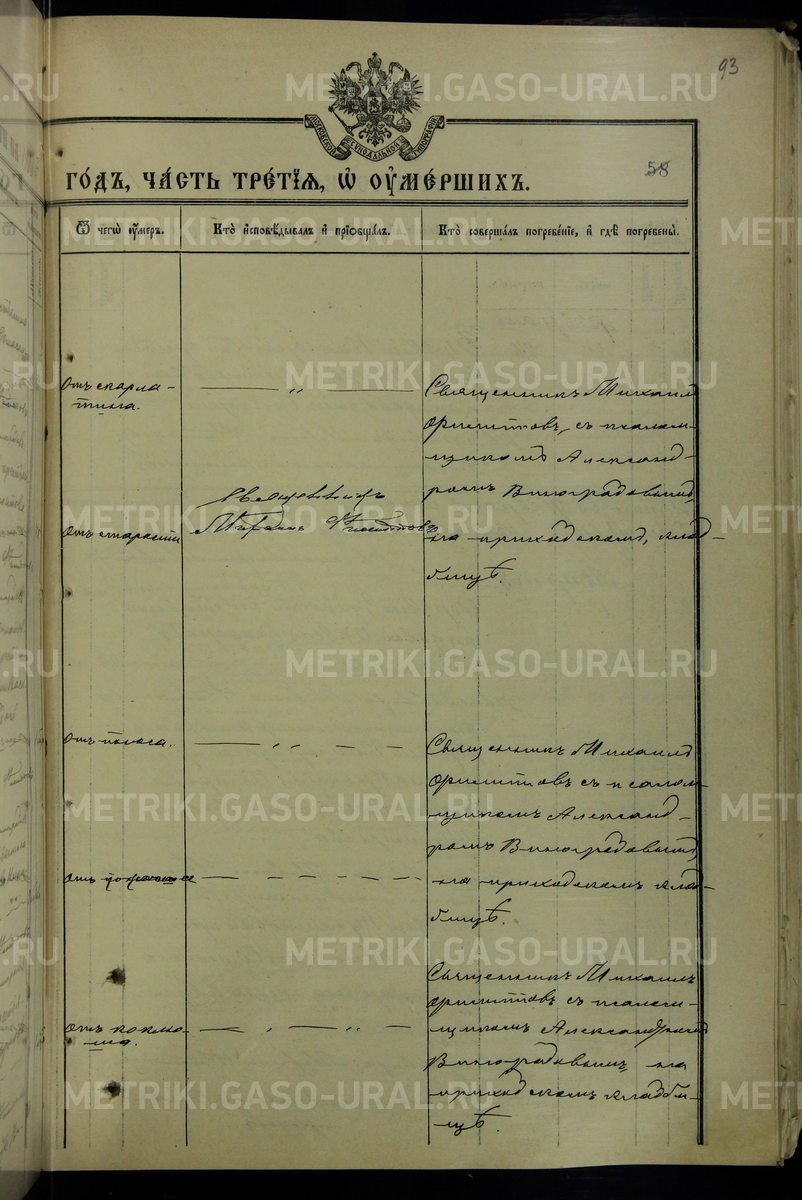 93
МОСКОВСКОЙ СѴНОДАЛЬНОЙ ТИПОГРАФІИ
58
ГОДЪ, ЧАСТЬ ТРЕТІѦ, Ѡ ОУМЕРШИХЪ.
Ѿ чегѡ оумеръ.
Кто исповѣдывалъ и прїобщалъ.
Кто совершалъ погребенїе, и гдѣ погребены.
Отъ скарла-
тина.
Священникъ Михаилъ
съ псалом-
щикомъ Александ-
ромъ Виноградовымъ
на приходскомъ, клад-
бищѣ.
отъ старости
Священникъ
Михаилъ
Отъ поноса.
Священникъ Михаилъ
съ псалом-
щикомъ Александ-
ромъ Виноградовымъ
на приходскомъ клад-
бищѣ.
отъ
отъ коклю
ша.
Священникъ Михаилъ
съ псалом-
щикомъ Александромъ
Виноградовымъ на
приходскомъ кладби-
щѣ.
METRIKI.GASO-URAL.RU